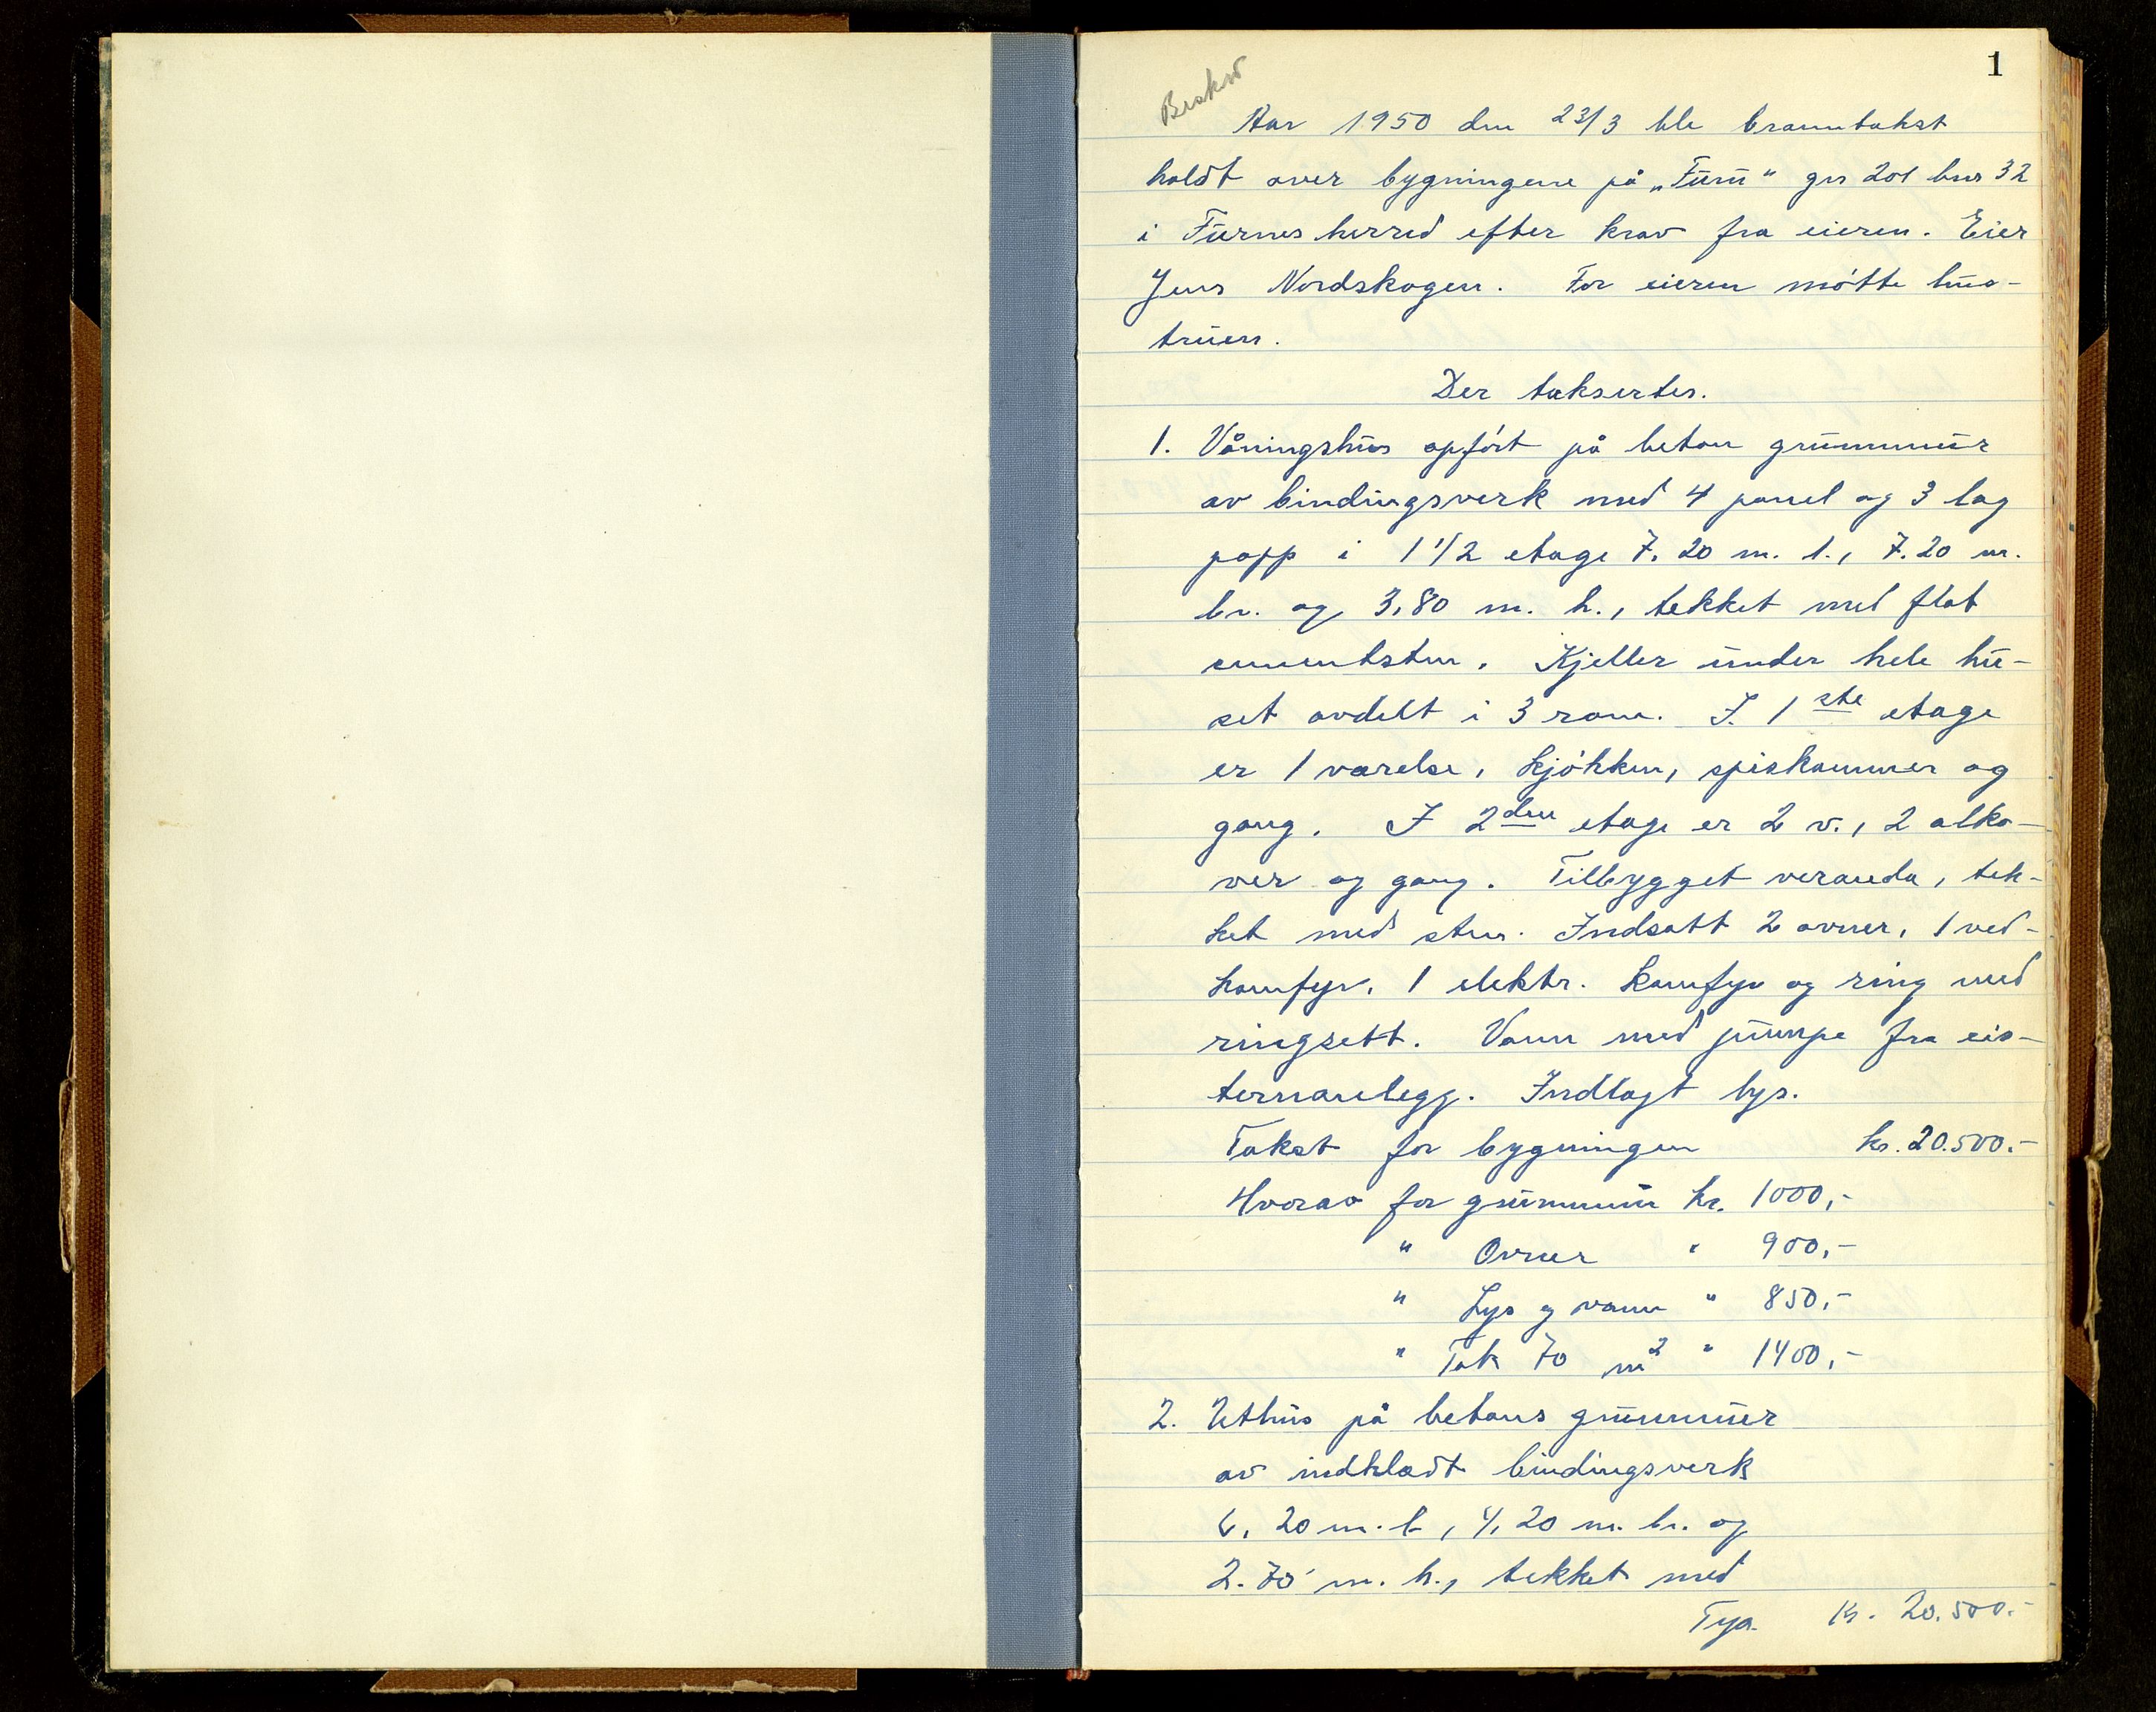 1
Aar 1950 den 23/3 ble branntakst
holdt over bygningene på „Furu" gnr 201 bnr 32
i Furnes herred efter krav fra eieren. Eier
Jens Nordskogen. For eieren møtte hus-
truen.
Der taksertes.
1. Våningshus opført på beton grunnmur
av bindingsverk med 4 panel og 3 lag
papp i 1 1/2 etage 7.20 m. l., 7.20 m.
br. og 3,80 m. h., tekket med flat
sementsten. Kjeller under hele hu-
set avdelt i 3 rom. I. 1 ste etage
er 1 værelse, kjøkken, spiskammer og
gang. I 2den etage er 2 v., 2 alko-
ver og gang. Tilbygget veranda, tek-
ket med sten. Indsatt 2 ovner, 1 ved-
komfyr, 1 elektr. komfyr og ring med
ringsett. Vann med pumpe fra cis-
ternanlegg. Indlagt lys.
Takst for bygningen kr. 20.500.-
Hvorav for grunnmur kr. 1000,-
" Ovner " 900,-
" Lys og vann " 850,-
" Tak 70 m2 " 1400,-
2. Uthus på betons grunnmur
av indklædt bindingsverk
6,20 m. l, 4,20 m. br. og
2.70 m. h., tekket med
kr. 20.500.-